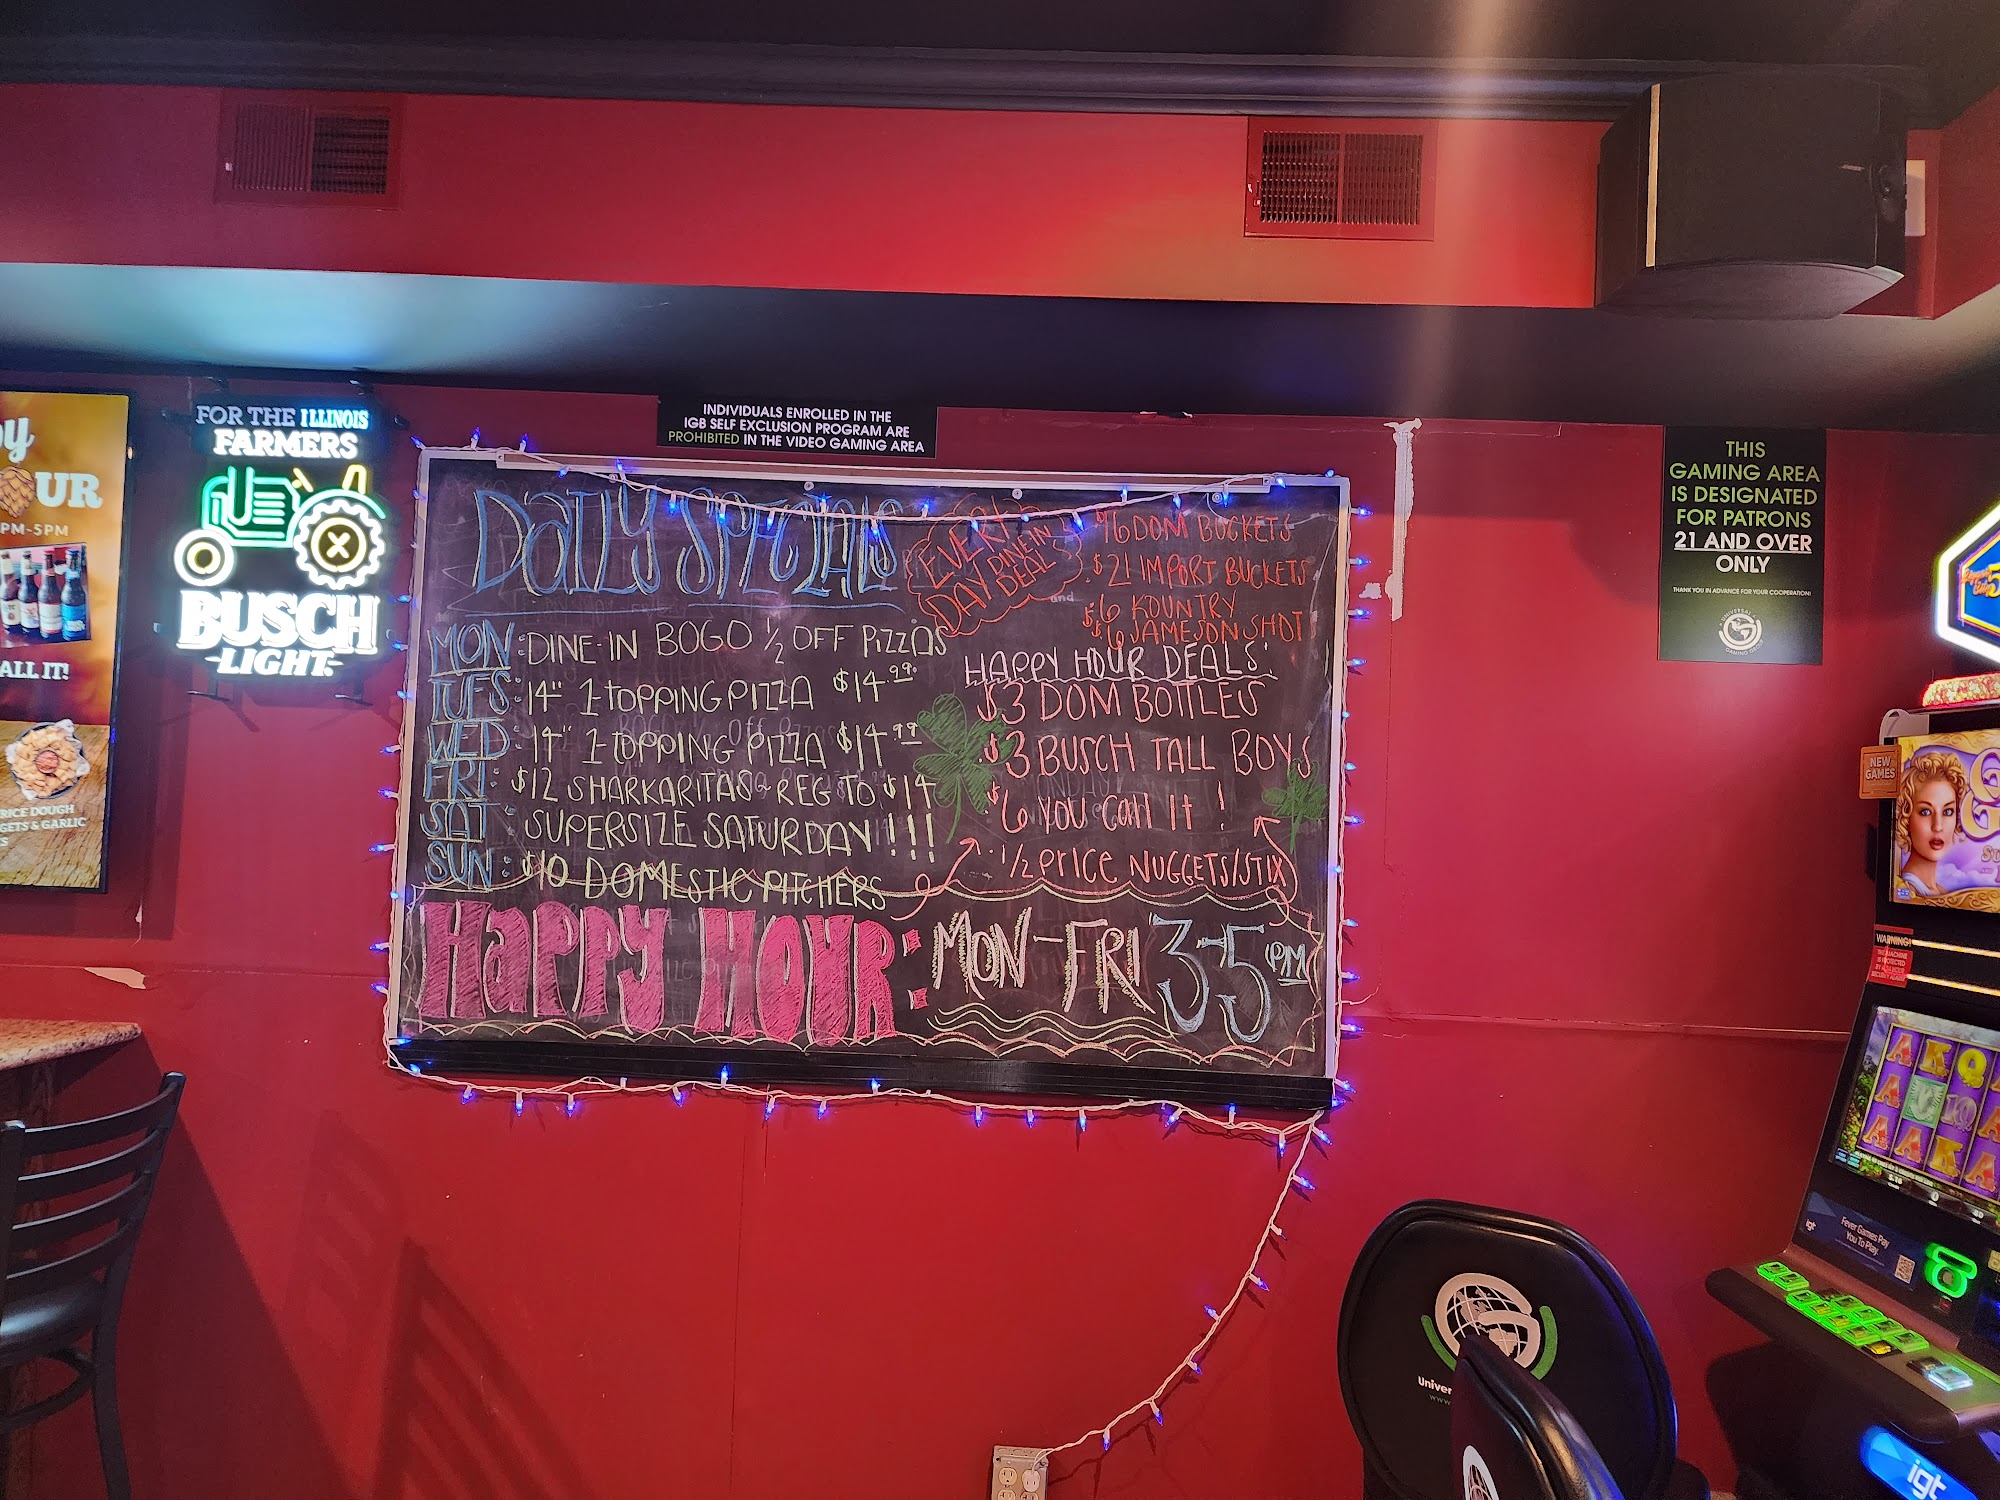 UR
PM-5PM
ALL IT!
RICE DOUGH
GETS & GARLIC
FOR THE ILLINOIS
FARMERS
BUSCH
LIGHT.
INDIVIDUALS ENROLLED IN THE
IGB SELF EXCLUSION PROGRAM ARE
PROHIBITED IN THE VIDEO GAMING AREA
DAILY SPECIALS
MON: DINE-IN BOGO 1/2 OFF PIZZAS
TUES: 14" 1-TOPPING PIZZA $14.99
WED: 14" 1-TOPPING PIZZA $14.99
FRI: $12 SHARKARITAS REG TO $14
SAT: SUPERSIZE SATURDAY!!!
SUN: $10 DOMESTIC PITCHERS
EVERY
DAY DINE IN
DEAL
$16 DOM BUCKETS
$21 IMPORT BUCKETS
and
$6 KOUNTRY
$6 JAMESON SHOT
HAPPY HOUR DEALS:
$3 DOM BOTTLES
$3 BUSCH TALL BOYS
$6 YOU CALL IT!
1/2 PRICE NUGGETS/STIX
HAPPY HOUR: MON-FRI 3-5 PM
THIS
GAMING AREA
IS DESIGNATED
FOR PATRONS
21 AND OVER
ONLY
THANK YOU IN ADVANCE FOR YOUR COOPERATION!
UNIVERSAL
GAMING GROUP
NEW
GAMES
WARNING!
A K Q
A 10
A A K A
Fever Games Pay
You To Play.
igt
Univer
igt